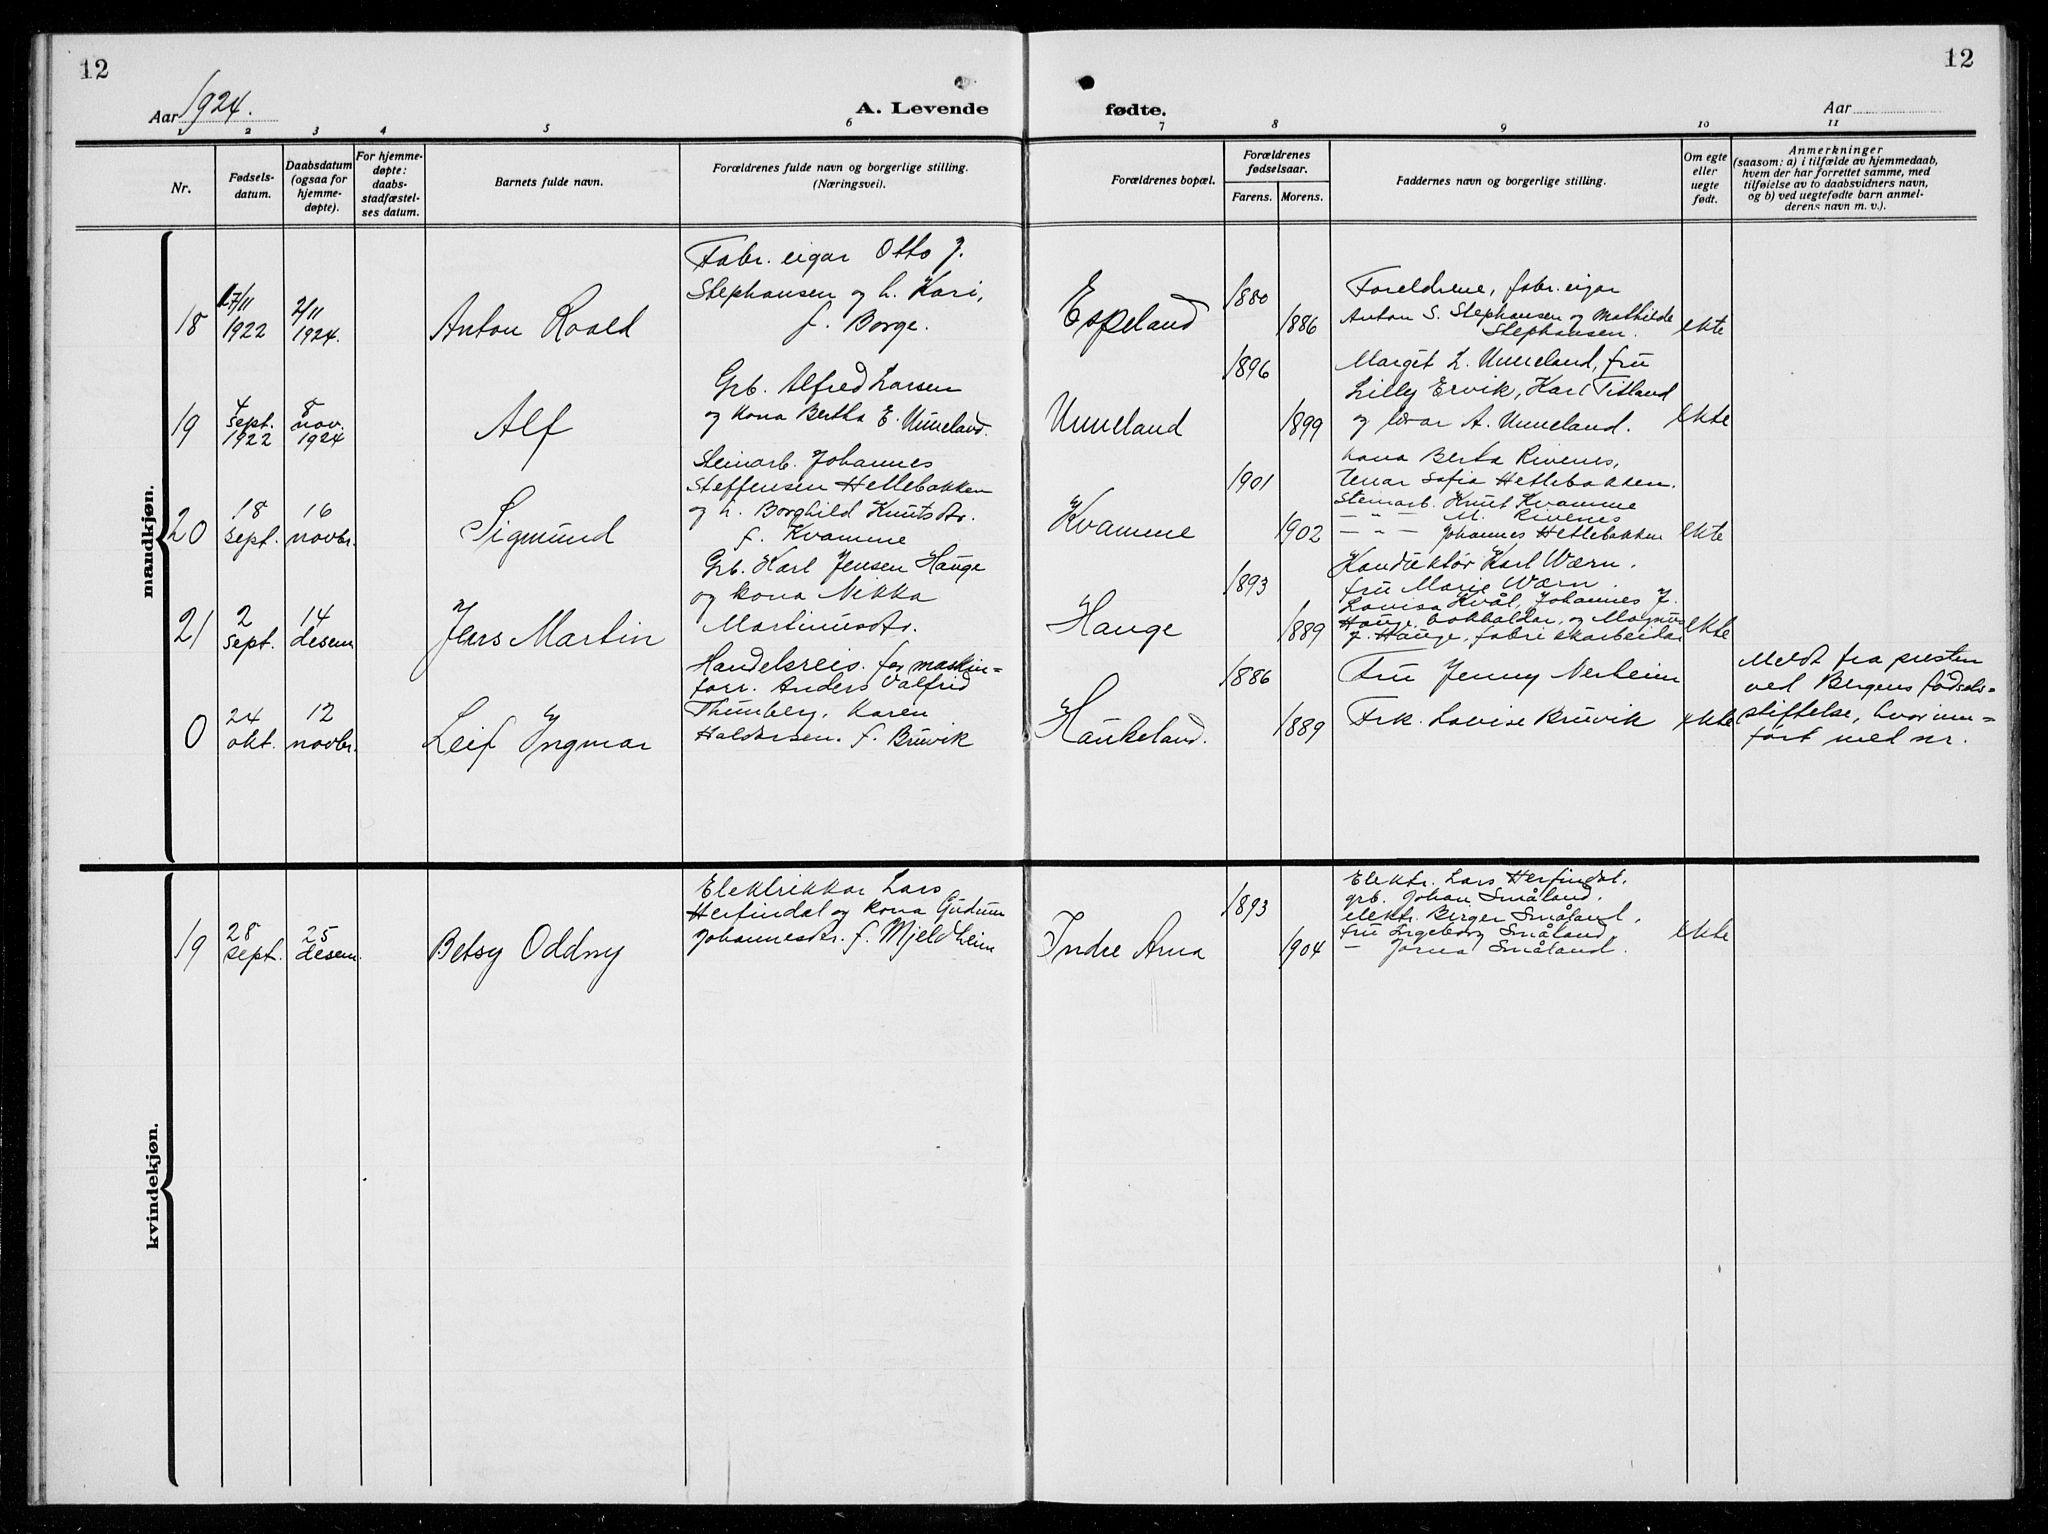 12
12
Aar 1924.
A. Levende
fødte.
Aar
1 2 3 4 5 6 7 8 9 10 11
Nr.
Fødsels-
datum.
Daabsdatum
(ogsaa for
hjemme-
døpte).
For hjemme-
døpte:
daabs-
stadfæstel-
ses datum.
Barnets fulde navn.
Forældrenes fulde navn og borgerlige stilling.
(Næringsvei).
Forældrenes bopæl.
Forældrenes
fødselsaar.
Farens. Morens.
Faddernes navn og borgerlige stilling.
Om egte
eller
uegte
født.
Anmerkninger
(saasom: a) i tilfælde av hjemmedaab,
hvem der har forrettet samme, med
tilføielse av to daabsvidners navn,
og b) ved uegtefødte barn anmel-
derens navn m. v.).
mandkjøn.
18
17/11
1922
2/11
1924.
Anton Roald
Fabr. eigar Otto J.
Stephansen og h. Kari,
f. Borge.
Espeland
1880
1886
Foreldrene, fabr. eigar
Anton S. Stephansen og Mathilde
Stephansen.
ekte
19
4
sept.
1922
8
nov.
1924
Alf
Grb. Alfred Larsen
og kona Bertha E. Unneland.
Unneland
1896
1899
Margit L. Unneland, fru
Lilly Ervik, Karl Titland
og lærar A. Unneland.
ekte
20
18
sept.
16
novbr.
Sigmund
Steinarb. Johannes
Steffensen Hetlebakken
og h. Borghild Knutsdtr.
f. Kvamme
Kvamme
1901
1902
kona Berta Rivenes,
Tenar Sofia Hetlebakken.
Steinarb. Knut Kvamme
— " — M. Rivenes
— " — Johannes Hetlebakken
ekte
21
2
sept.
14
desem
Jens Martin
Grb. Karl Jensen Hauge
og kona Nikka
Martinusdtr.
Hauge
1893
1889
Konduktør Karl Wærn.
fru Marie Wærn.
Lovisa Kvål, Johannes J.
Hauge, bokhaldar, og Magnus
J. Hauge, fabrikkarbeidar
ekte
0
24
okt.
12
novbr.
Leif Yngmar
Handelsreis. for maskin-
forr. Anders Valfrid
Thunberg, Karen
Haldorsen. f. Bruvik
Haukeland.
1886
1889
Fru Jenny Nerheim
Frk. Lovise Bruvik
ekte
Meldt fra presten
ved Bergens fødsels-
stiftelse, hvor inn-
ført med nr.
kvindekjøn.
19
28
sept.
25
desem.
Betsy Oddny
Elektrikkar Lars
Herfindal og kona Gudrun
Johannesdtr. f. Mjeldheim
Indre Arna
1893
1904
Elektr. Lars Herfindal.
grb. Johan Småland.
elektr. Birger Småland.
fru Ingeborg Småland
— Jorna Småland.
ekte